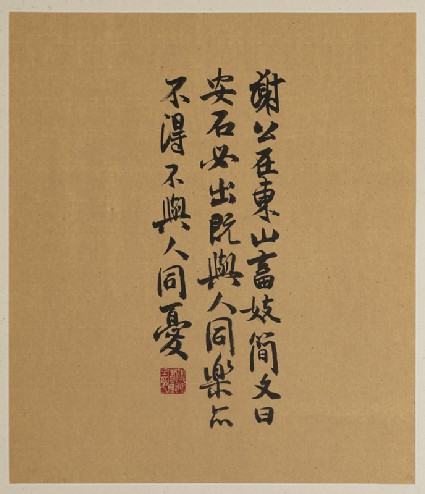 謝公在東山畜妓簡文曰
安石必出既與人同樂亦
不得不與人同憂